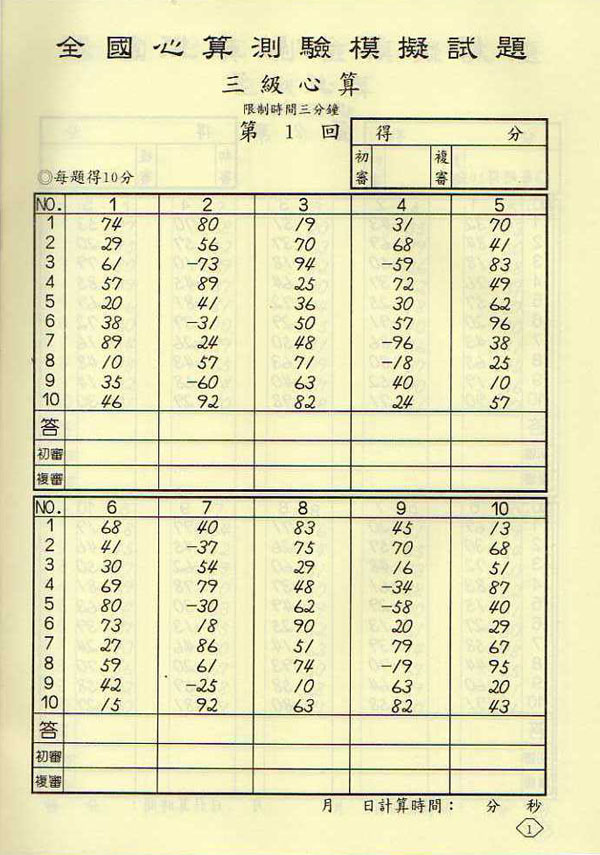 全國心算測驗模擬試題
三級心算
限制時間三分鐘
第 1 回
得 分
初審 複審
◎每題得10分
NO. 1 2 3 4 5
1 74 80 19 31 70
2 29 56 70 68 41
3 61 -73 94 -59 83
4 57 89 25 72 49
5 20 41 36 30 62
6 38 -31 50 57 96
7 89 24 48 -96 38
8 10 57 71 -18 25
9 35 -60 63 40 10
10 46 92 82 24 57
答
初審
複審
NO. 6 7 8 9 10
1 68 40 83 45 13
2 41 -37 75 70 68
3 30 54 29 16 51
4 69 78 48 -34 87
5 80 -30 62 -58 40
6 73 18 90 20 29
7 27 86 51 79 67
8 59 61 74 -19 95
9 42 -25 10 63 20
10 15 92 63 82 43
答
初審
複審
月 日計算時間： 分 秒
1